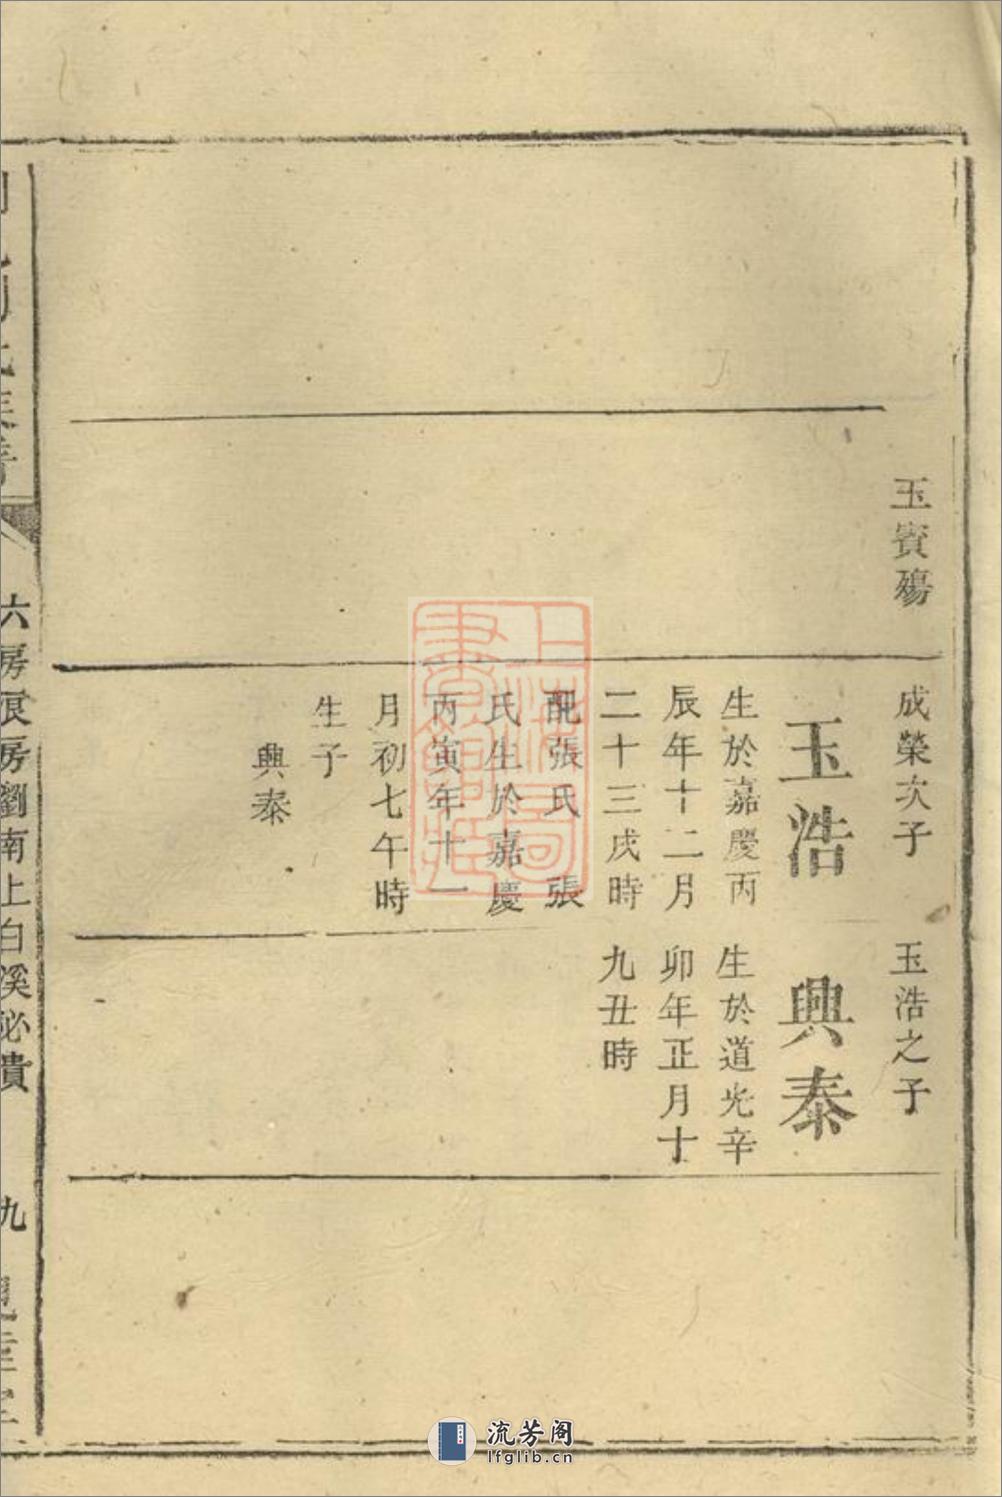 玉賓殤
成榮次子
玉浩
生於嘉慶丙
辰年十二月
二十三戌時
配張氏 張
氏生於嘉慶
丙寅年十一
月初七午時
生子
興泰
玉浩之子
興泰
生於道光辛
卯年正月十
九丑時
六房
房劉南上白溪祕貴
九
上海圖書館藏
流芳阁
lfglib.cn